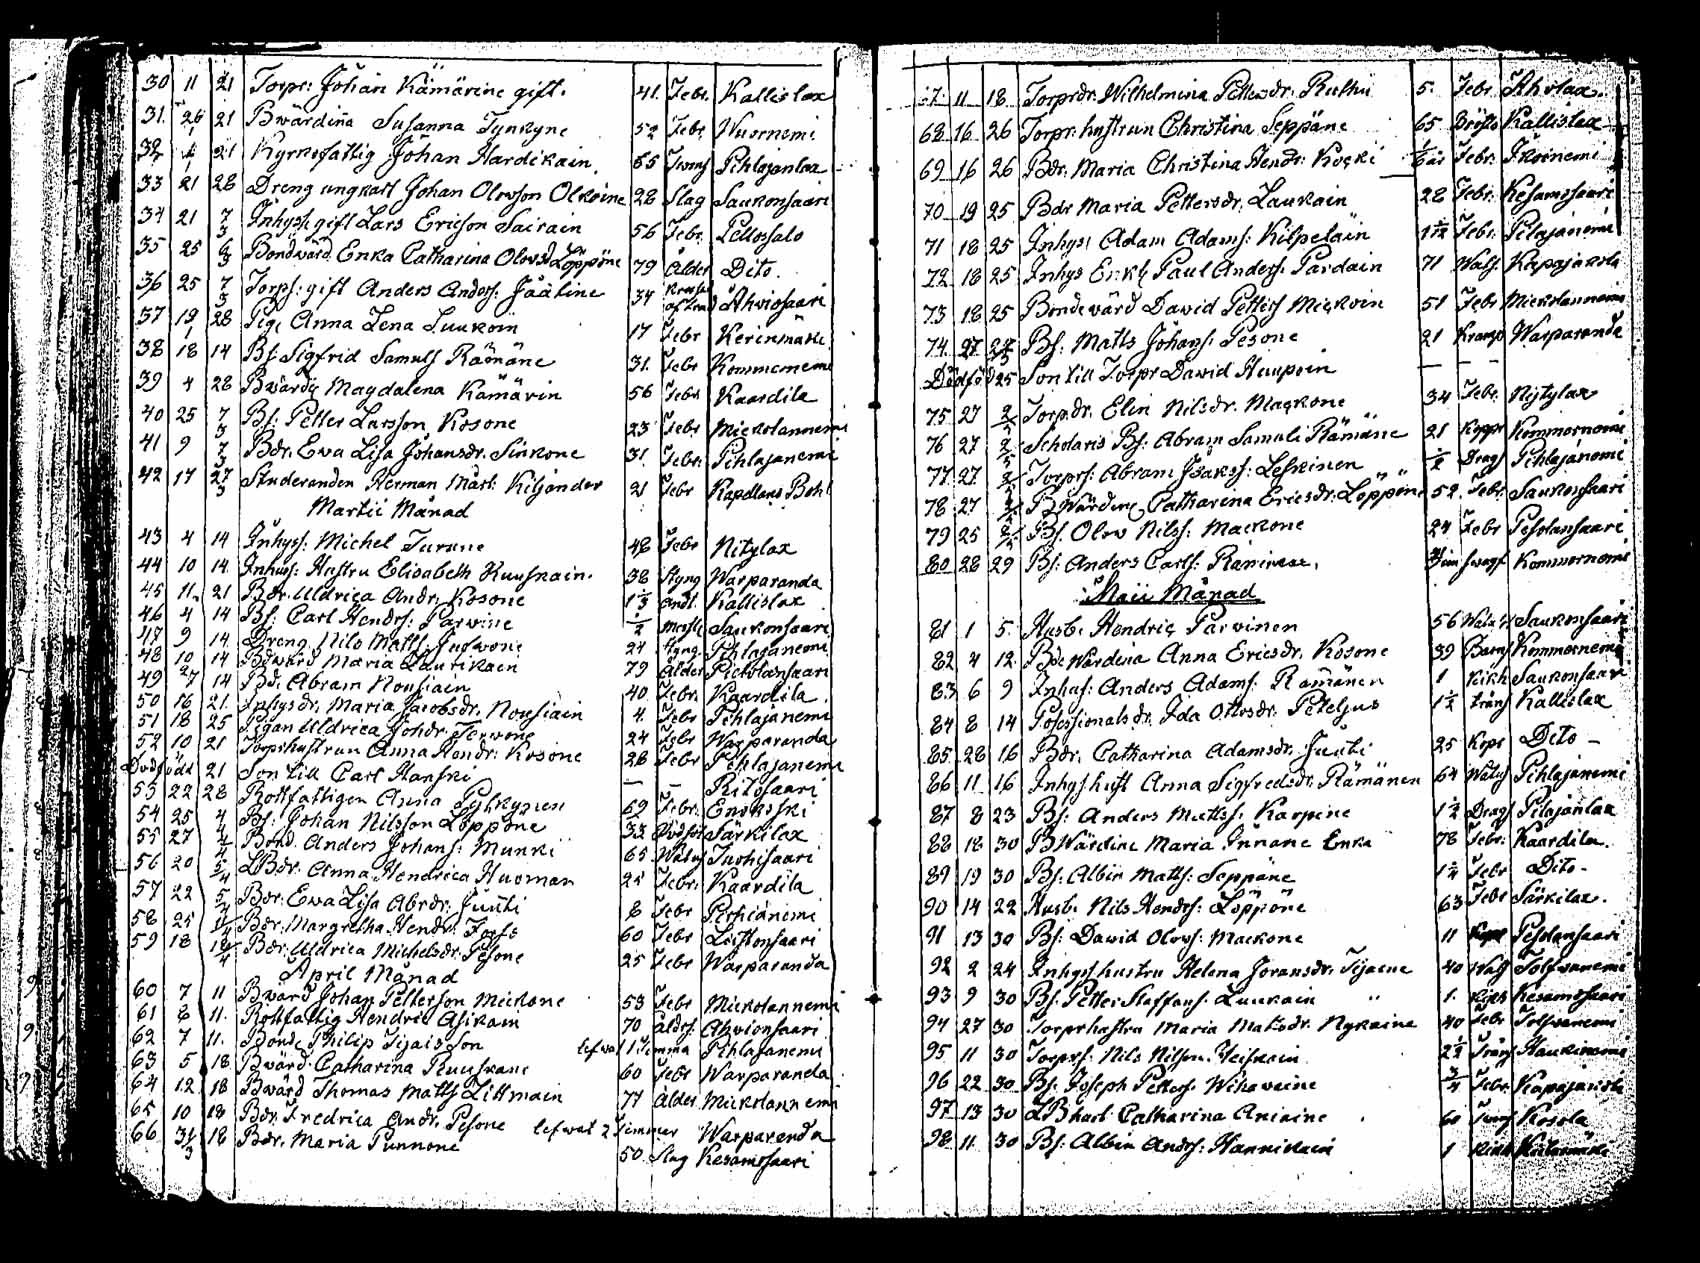 30 11 21 Torpr: Johan Kämärine gift. 41. Febr. Kallislax
31. 26 21 Bwärdiña Susanna Tynkyne 52 Febr Wuornemi
32 21 Kyrkofattig Johan Hardikain 65 Pihlajanlax
33 21 28 Dreng ungkarl Johan Olovson Olkoine 28 Slag Saukonsaari
34 21 7/3 Inhys: gift Lars Ericson Sairain 56 Febr. Pellossalo
35 25 6/3 Bondwärd. Enka Catharina Olovsd Löppöne 79 Ålder Dito.
36 25 7/3 Torps: gift Anders Anders: Jäätine 34 Ahviosaari
37 19/1 28 Pig. Anna Lena Luukoin 17 Febr Kerimäki
38 18 14 Bs. Sigfrid Samuls Rämäne 31. Febr Kommernemi
39 4 28 Bwärdg Magdalena Kämärin 56 Febr Kaardila
40 25 7/3 Bs. Petter Larsson Kosone 23 Febr Mickolannemi
41 9 7/3 Bdr. Ewa Lisa Johansdr. Sinkone 31. Febr. Pihlajanemi
42 17 27/3 Studeranden Herman Mart: Kiljander 21 Febr Kapellans Bohl
Martii Månad
43 4 14 Inhyss: Michel Turune 48 Febr Nitylax
44 10 14 Inhys: Hustru Elisabeth Ruuskain. 38 Styng Warparanda
45 11. 21 Bdr. Uldrica Andr. Kosone 1 1/3 Andt. Kallislax
46 4 14 Bs. Carl Hendrs: Parwine 1/2 Saukonsaari
47 9 14 Dreng Nils Matts: Juswone 24 Styng. Pihlajanemi
48 10 14 Bdwärd Maria Lautikain 79 Ålder
49 27 14 Bd. Abram Nousiain 40 Febr. Kaardila
50 16 21. Inhysdr. Maria Jacobsdr. Nousiain 4. Febr Pihlajanemi
51 18 25 Pigan Uldrica Johdr. Terwone 24 Febr Warparanda
52 10 21 Torpshustrun Anna Hendr: Kosone 28 Febr Pihlajanemi
Dödfödd 21 Son till Carl Hanski — — Ritosaari
53 22 28 Rottfattigen Anna Pylkkynen 69 Febr.
54 25 4/4 Bs: Johan Nilsson Löppöne 33 Särkilax
55 27 4/4 Bond. Anders Johans: Munki 65 Watus Juohisaari
56 20 5/4 LBdr. Anna Hendrica Huoman 25 Febr. Kaardila
57 22 5/4 Bdr. Ewa Lisa Abrdr. Juuti 8 Febr
58 25 Bdr. Margretha Hendr. Fors 60 Febr Leistonsaari
59 18 18/4 Bdr: Uldrica Michelsdr. Pesone 25 Febr Warparanda
April Månad
60 7 11 Bwärd Johan Petterson Mickone 53 Febr Mickolannemi
61 8 11. Rottfattig Hendric Asikain 70 Åldrs. Ahvionsaari
62 7 11. Bonde Philip Tijais Son lefwat 1 Timma Pihlajanemi
63 5 18. Bwärd Catharina Ruuskane 60 Febr Warparanda
64 12 18 Bwärd Thomas Matts Littmain 77 Ålder Mickolannemi
65 10 18 Bdr. Fredrica Andr. Pesone lefwat 2 Timmer Warparanda
66 31/3 18 Bdr. Maria Punnone 50 Slag Kesamosaari
67 11 18 Torprdr. Wilhelmina Pettersdr. Ruthu 5. Febr. Ahvlax.
68 16 26 Torpr: hustrun Christina Seppäne 65 Kallislax
69 16 26 Bdr. Maria Christina Hendr. Kocki Febr. Ikoinemi
70 19 25 Bdr Maria Pettersdr. Laukain 28 Febr. Kesamosaari
71 18 25 Inhys: Adam Adams: Kilpeläin Febr. Pilajanemi
72 18 25 Inhys Enkl Paul Anders: Pardain 71 Watt. Kapajakola
73 18 25 Bondewärd Dawid Petters Mickoin 51 Febr Mickolannemi
74 27 Bs. Matts Johans: Pesone 21 Kramp Warparanda
Dödföd 25 Son till Torpr Dawid Haupoin — —
75 27 2/5 Torpdr. Elin Nilsdr. Mackone 34 Febr. Nytylax
76 27 2/5 Scholaris Bs: Abram Samuls Rämäne 21 Koppr Kommornemi
77 27 2/5 Torprs: Abram Isaks: Leskinen 1/2 Drag Pihlajanemi
78 27 2/5 B Wärdine Catharina Ericsdr. Löppöne 52. Febr. Saukonsaari
79 25 Bs. Olow Nilss: Mackone 24 Febr Pesolansaari
80 28 29 Bs: Anders Carls: Räminene. Kommornemi
Maii Månad
81 1 5. Husb. Hendric Parvinen 56 Watus Saukonsaari
82 4 12. Bde Wärdina Anna Ericsdr. Kosone 39 Barns Kommernemi
83 6 9 Inhus: Anders Adams: Rämänen 1 Kikh Saukonsaari
84 8 14 Pofessionals dr. Ida Ottosdr. Peteljus 1 1/2 Trång Kallislax
85 28 16 Bdr. Catharina Adamsdr. Juuti 25 Kopr Dito —
86 11 16 Inhys hust Anna Sigfredsdr. Rämänen 64 Watus Pihlajanemi
87 8 23 Bs: Anders Matts: Karpine 1 1/2 Drag Pilajanlax
88 18 30 BWärdine Maria Innane Enka 78 Febr. Kaardila.
89 19 30 Bs: Albin Matts: Seppäne 1 1/2 Febr Dito-
90 14 22 Husb. Nils Hendrs: Löppöne 63 Febr Särkilax.
91 13 30 Bs: Dawid Olovs: Mackone 11 Kopr Pesolansaari
92 2 24 Inhys hustru Helena Joransdr. Tijaene 40 Watt Tolfwanemi
93 9 30 Bs: Petter Staffans: Laukain " 1. Kikh Kesamosaari
94 27 30 Torprhustru Maria Matsdr. Nykaine 40 Febr Tolfwanemi
95 11 30 Torprs: Nils Nilson Heiskain 2 1/2 Trång Haukinemi
96 22 30 Bs. Joseph Petters: Wihavaine 3/4 Febr. Kapajakola
97 13 30 LB hust. Catharina Aniaine 60 Kosola
98 11 30 Bs: Albin Andrs: Hannikain 1 Kikh